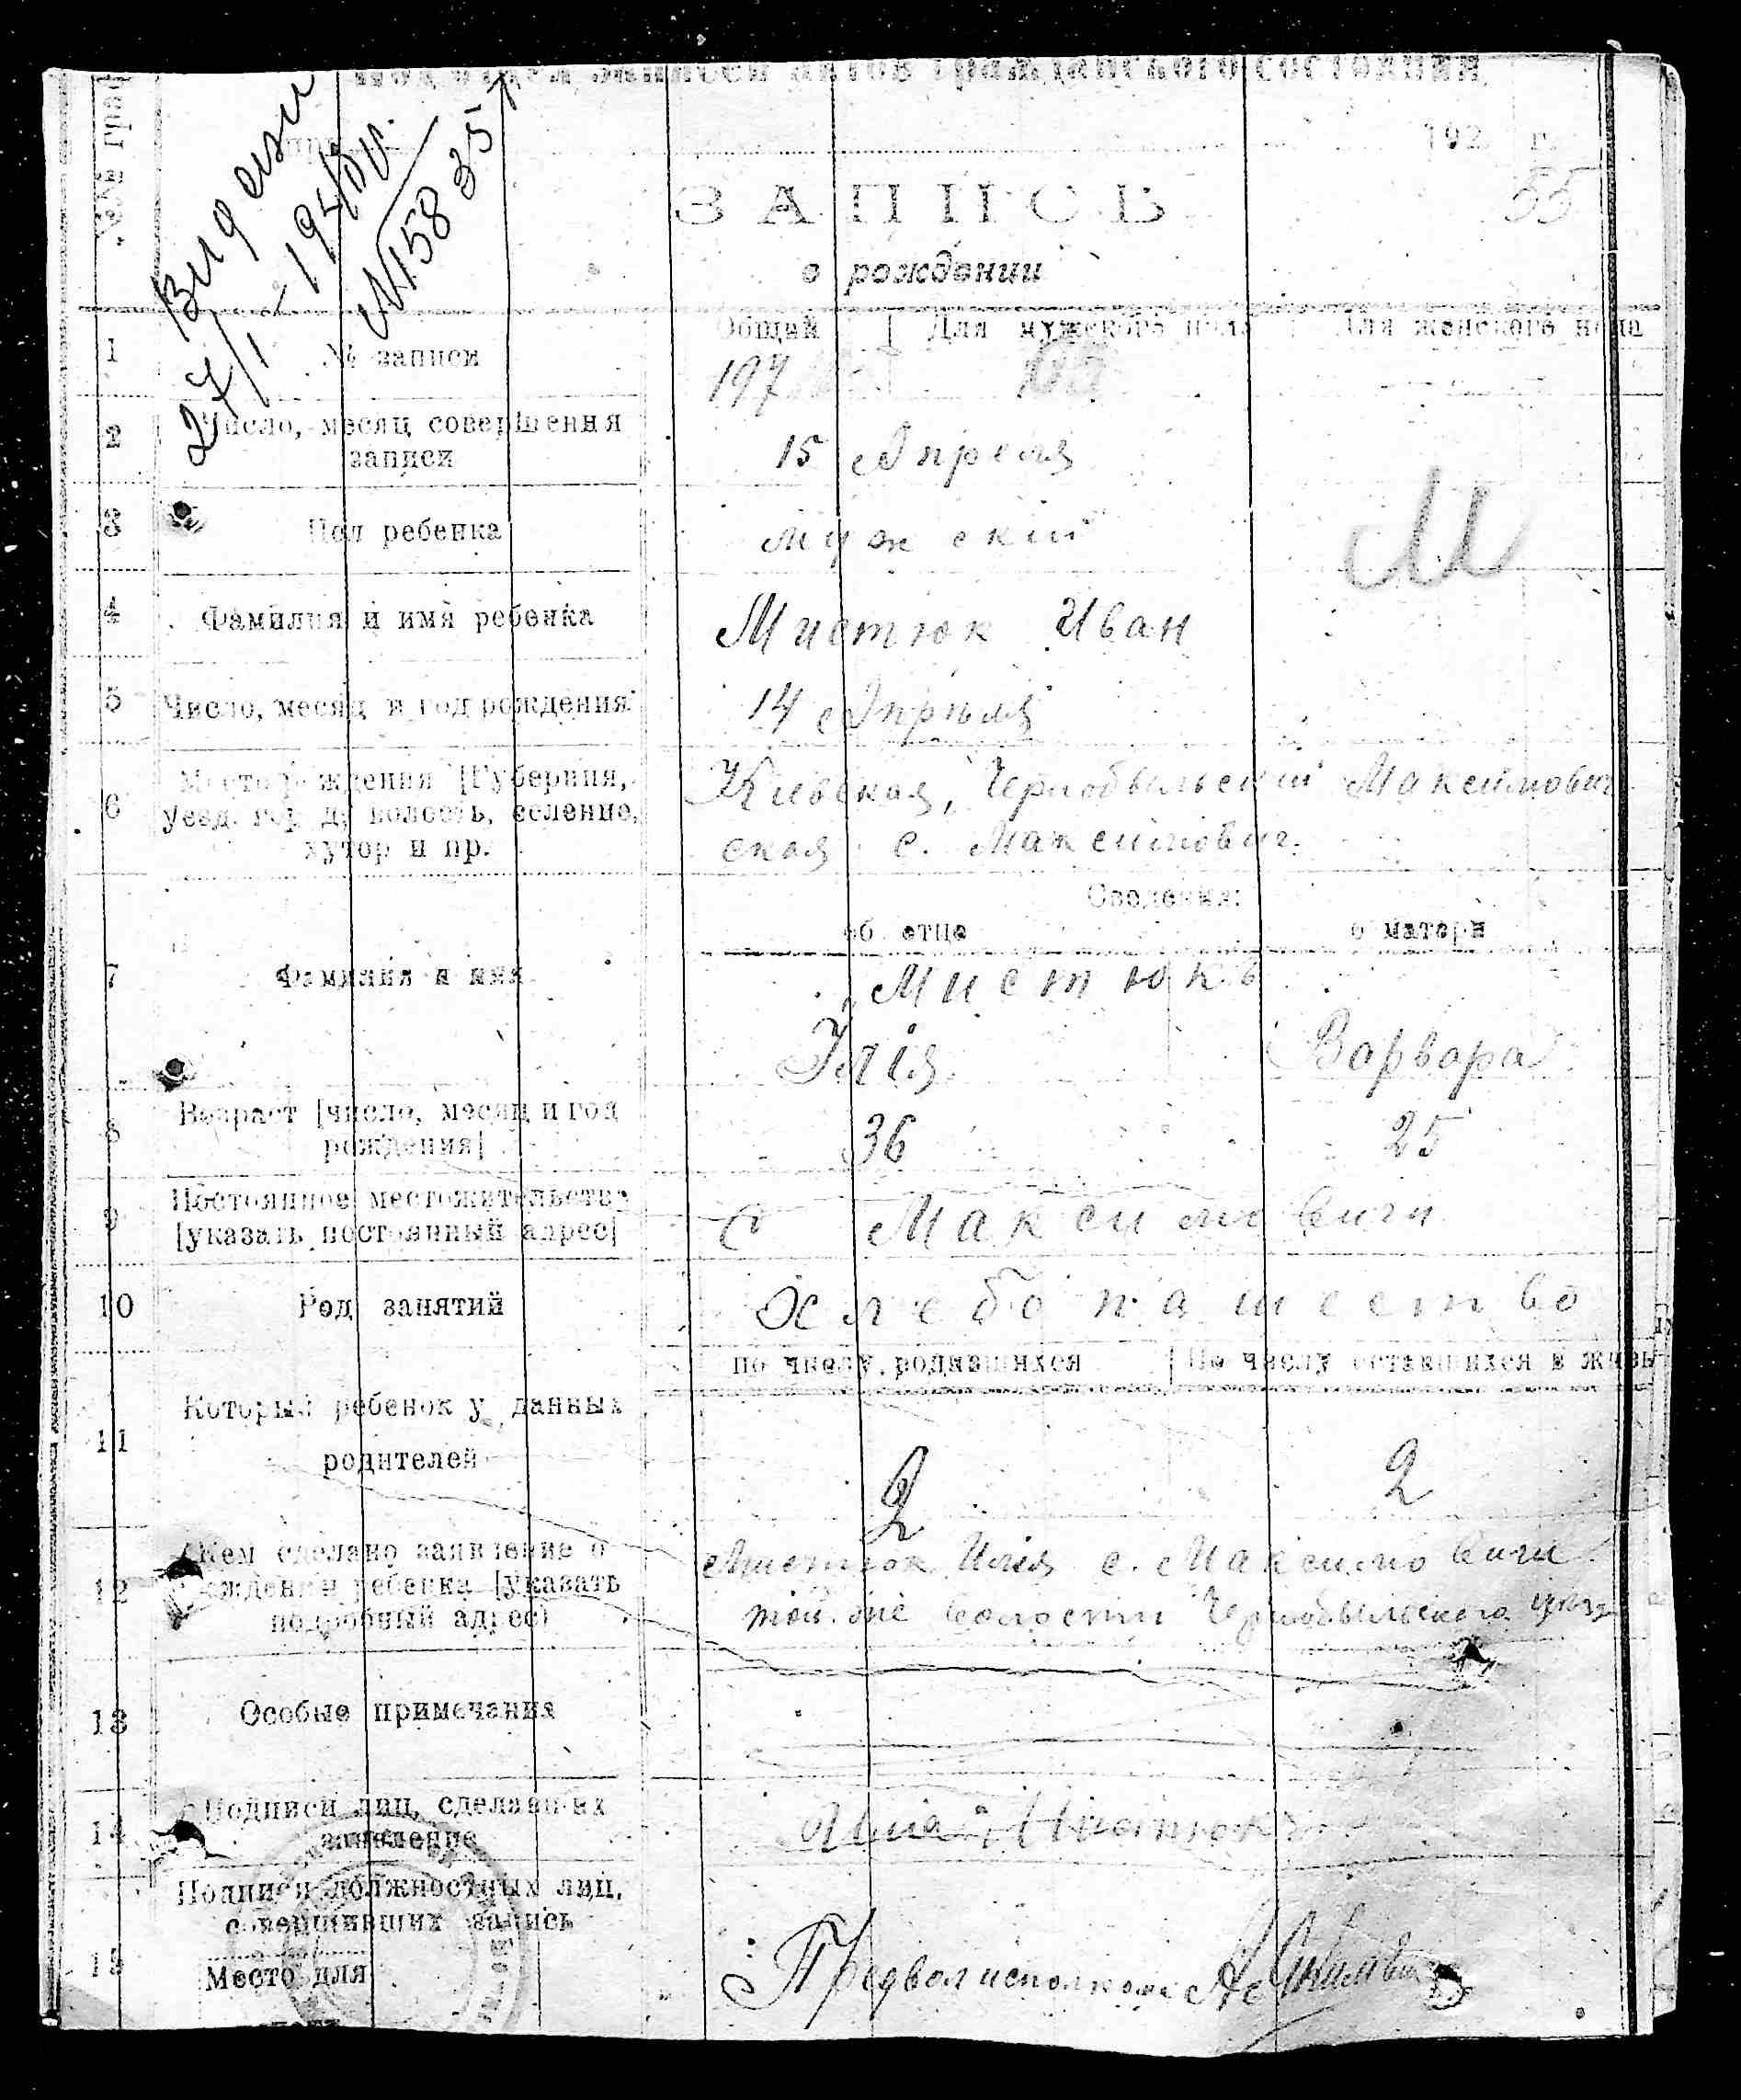 записи актов гражданского состояния
№№ граф
192 г.
55
27/I
№15835
ЗАПИСЬ
о рождении
Общий | Для мужского пола | Для женского пола
1 № записи 197
2 Число, месяц совершения 15 Апреля
записи
3 Пол ребенка мужский М
4 Фамилия и имя ребенка Мистюк Иван
5 Число, месяц и год рождения 14 Апрѣля
6 Место рождения [Губерния, Киевская, Чернобыльский Максимович
уезд, город, волость, селение, ская с. Максимович.
хутор и пр.
Сведения:
об отце о матери
7 Фамилия и имя Мистюкъ
Ілія Варвара
8 Возраст [число, месяц и год 36 25
рождения]
9 Постоянное местожительство с Максимовичи
[указать постоянный адрес]
10 Род занятий Хлебопашество
по числу родившихся | По числу оставшихся в живы
11 Который ребенок у данных
родителей 2 2
12 Кем сделано заявление о Мистюк Илія с. Максимовичи
рождении ребенка [указать той же волости Чернобыльского
подробный адрес)
13 Особые примечания
14 Подписи лиц, сделавших Илія Мистюк
заявление
Подписи должностных лиц,
совершивших запись
15 Место для Предволисполкома